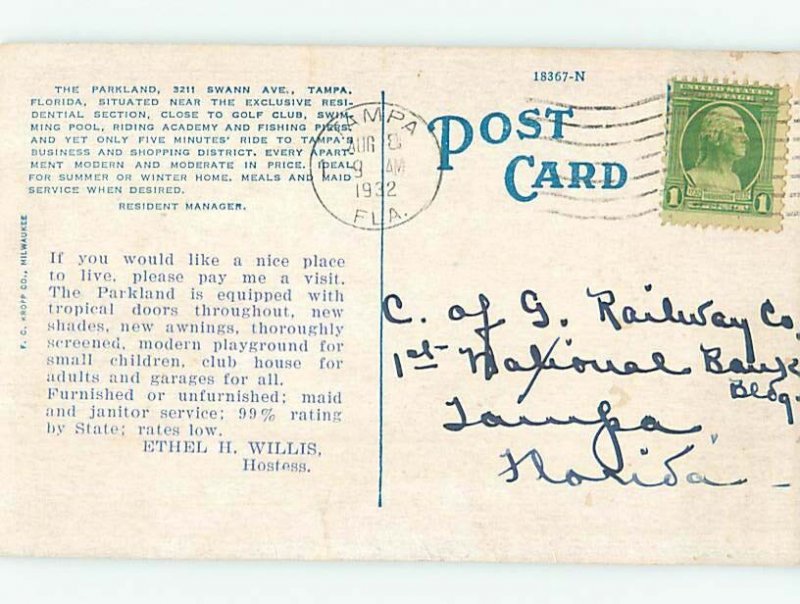 18367-N
THE PARKLAND, 3211 SWANN AVE., TAMPA,
FLORIDA, SITUATED NEAR THE EXCLUSIVE RESI-
DENTIAL SECTION, CLOSE TO GOLF CLUB, SWIM-
MING POOL, RIDING ACADEMY AND FISHING PIERS,
AND YET ONLY FIVE MINUTES' RIDE TO TAMPA'S
BUSINESS AND SHOPPING DISTRICT. EVERY APART-
MENT MODERN AND MODERATE IN PRICE. IDEAL
FOR SUMMER OR WINTER HOME. MEALS AND MAID
SERVICE WHEN DESIRED.
RESIDENT MANAGER.
F. C. KROPP CO., MILWAUKEE
If you would like a nice place
to live, please pay me a visit.
The Parkland is equipped with
tropical doors throughout, new
shades, new awnings, thoroughly
screened, modern playground for
small children, club house for
adults and garages for all.
Furnished or unfurnished; maid
and janitor service; 99% rating
by State; rates low.
ETHEL H. WILLIS,
Hostess.
TAMPA
AUG 8
9 AM
1932
FLA.
POST
CARD
UNITED STATES
POSTAGE
1 1
C. of G. Railway Co,
1st National Bank
Bldg.
Tampa
Florida